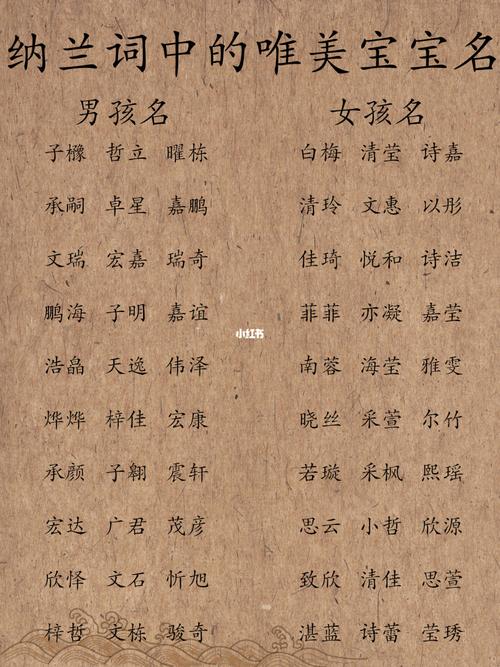 纳兰词中的唯美宝宝名
男孩名 女孩名
子橼 哲立 曜栋 白梅 清莹 诗嘉
承嗣 卓星 嘉鹏 清玲 文惠 以彤
文瑞 宏嘉 瑞奇 佳琦 悦和 诗洁
鹏海 子明 嘉谊 菲菲 亦凝 嘉莹
小红书
浩晶 天逸 伟泽 南蓉 海莹 雅雯
烨烨 梓佳 宏康 晓丝 采萱 尔竹
承颜 子翱 震轩 若璇 采枫 熙瑶
宏达 广君 茂彦 思云 小哲 欣源
欣怿 文石 忻旭 致欣 清佳 思萱
梓哲 文栋 骏奇 湛蓝 诗蕾 莹琇